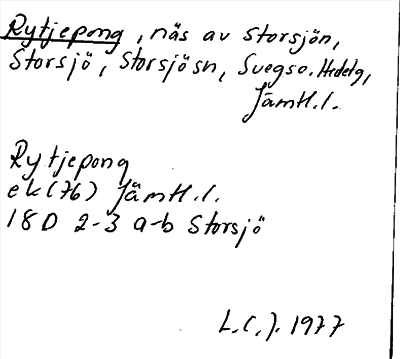 Rytjepong, näs av Storsjön,
Storsjö, Storsjösn, Svegso. Hedetg,
Jämtl.l.
Rytjepong
ek(76) Jämtl.l.
18D 2-3 a-b Storsjö
L.C.J. 1977